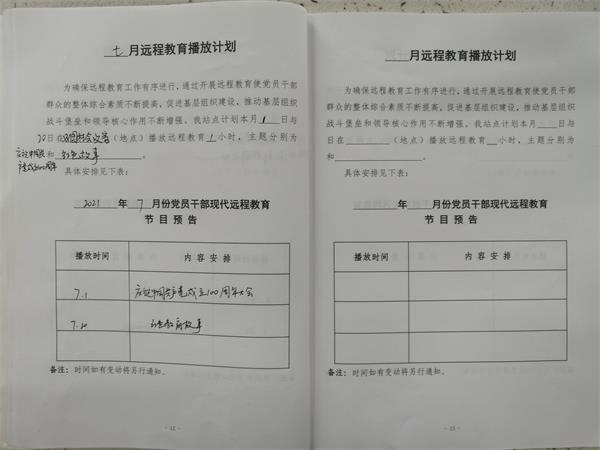 七月远程教育播放计划
为确保远程教育工作有序进行，通过开展远程教育使党员干部
群众的整体综合素质不断提高，促进基层组织建设，推动基层组织
战斗堡垒和领导核心作用不断增强。我站点计划本月 1 日与
20日在（地点）播放远程教育 1 小时，主题分别为
和 红色故事。
具体安排见下表：
2021 年 7 月份党员干部现代远程教育
节目预告
播放时间 内容安排
7.1 庆祝中国共产党成立100周年大会
7.20 故事
备注：时间如有变动将另行通知。
- 12 -
月远程教育播放计划
为确保远程教育工作有序进行，通过开展远程教育使党员干部
群众的整体综合素质不断提高，促进基层组织建设，推动基层组织
战斗堡垒和领导核心作用不断增强。我站点计划本月 日与
日在 （地点）播放远程教育 小时，主题分别为
和 。
具体安排见下表：
年 月份党员干部现代远程教育
节目预告
播放时间 内容安排
备注：时间如有变动将另行通知。